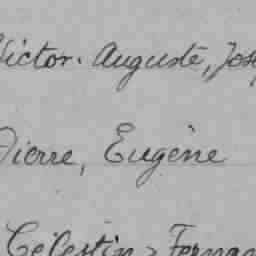 Victor. Auguste, Jos
Pierre, Eugène
Célestin, Fernan